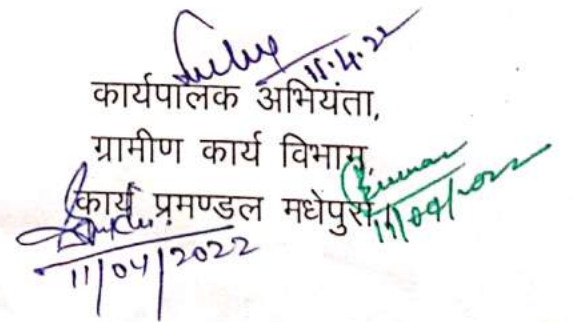 11.4.22
कार्यपालक अभियंता,
ग्रामीण कार्य विभाग,
कार्य प्रमण्डल मधेपुरा।
11/04/2022
11/04/2022